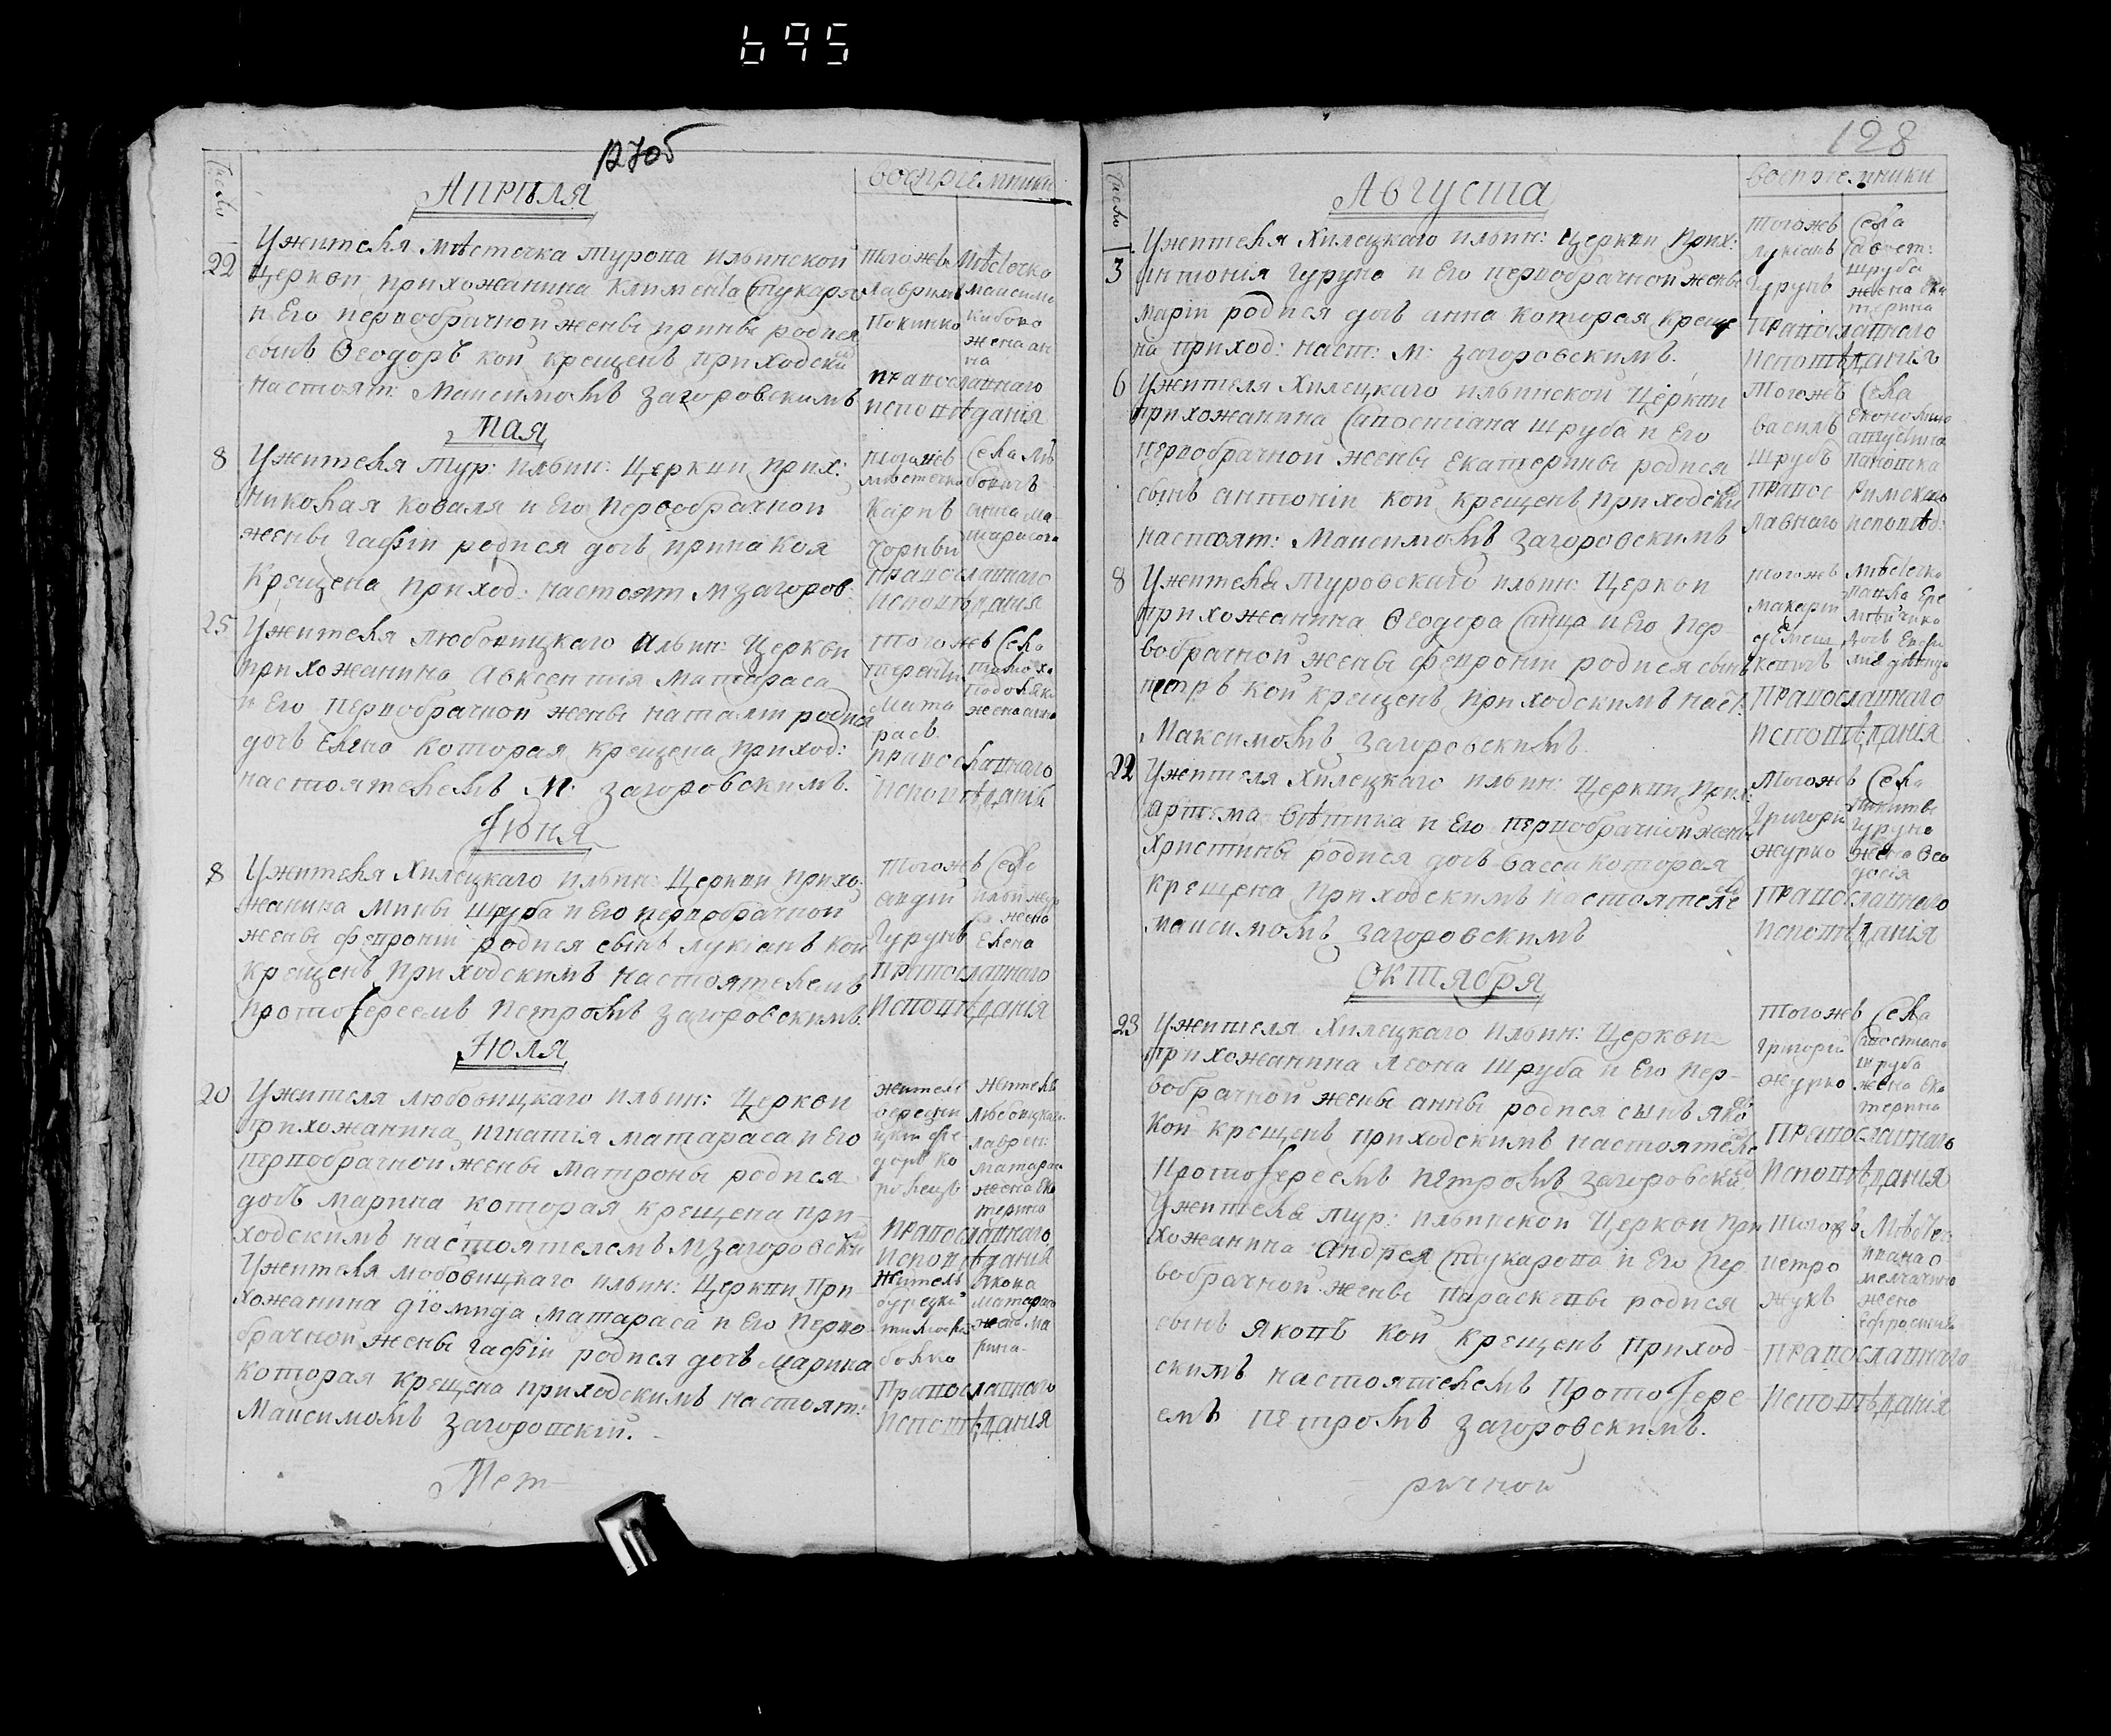 695
127об
Число
Априля
воспріемники
22
Ужителя мѣстечка Турова ильинской
церкви прихожанина Климента Стукара
и Его первобрачной жены родися
сынъ Ѳеодоръ кой крещенъ приходским
настоят: Максимомъ Загоровскимъ
тогожъ мѣстечка
максима
жена ан
на
православнаго
исповѣданія
Мая
8
Ужителя Тур: ильин: церкви прих:
Николая Коваля и Его первобрачной
жены Гафіи родися дочь ирина коя
крещена приход: настоят М загоров:
тогожъ
мѣстечка
Карпъ
Чорный
села
православнаго
исповѣданія
25
Ужителя любовицкаго ильин: церкви
прихожанина Авксентия Матараса
и Его первобрачной жены наталіи родися
дочь Елена которая крещена приход:
настоятелемъ М: загоровскимъ.
тогожъ села
терентій
мата
расъ
жена анна
православнаго
исповѣданія
Іюня
8
Ужителя Хилецкаго ильин: церкви прихо:
жанина Мины Шруба и Его первобрачной
жены февроніи родися сынъ лукіанъ кой
крещенъ приходскимъ настоятелемъ
протоіереемъ Петромъ загоровскимъ.
тогожъ села
андрій
Гурунъ
жена
Елена
православнаго
исповѣданія
Іюля
20
Ужителя любовицкаго ильин: церкви
прихожанина игнатія матараса и Его
первобрачной жены Матроны родися
дочь марина которая крещена при-
ходскимъ настоятелемъ М загоровским
житель
жителя
любовицкаго
лаврен:
матарас
жена Ека
терина
православнаго
исповѣданія
Ужителя любовицкаго ильин: церкви при-
хожанина діомида матараса и Его перво-
брачной жены гафіи родися дочь марина
которая крещена приходскимъ настоят:
Максимомъ загоровскій.
житель
бойко
якова
матараса
жена ма
рина
православнаго
исповѣданія
Мет-
128
Число
Августа
воспріемники
3
Ужителя Хилецкаго ильин: церкви прих:
антонія гуруна и Его первобрачной жены
маріи родися дочь анна которая креще
на приход: наст: М: загоровскимъ.
тогожъ села
лукіанъ
гурунъ
шруба
жена Ека
терина
православнаго
исповѣданія
6
Ужителя Хилецкаго ильинской церкви
прихожанина Савостіана шруба и Его
первобрачной жены Екатерины родися
сынъ антоній кой крещенъ приходским
настоят: Максимомъ загоровскимъ
тогожъ села
василь
шрубъ
правос
лавнаго
римскаго
исповѣд:
8
Ужителя Туровскаго ильин: церкви
прихожанина Ѳеодора Санца и Его пер-
вобрачной жены февроніи родися сынъ
петръ кой крещенъ приходскимъ наст:
Максимомъ загоровскимъ.
тогожъ мѣстечка
макарій
православнаго
исповѣданія
22
Ужителя Хилецкаго ильин: церкви прих:
артема Вѣтика и Его первобрачной жены
христины родися дочь васса которая
крещена приходскимъ настоятеле
максимомъ загоровскимъ
тогожъ села
григорій
журко
никиты
гуруна
жена Ѳео
досія
православнаго
исповѣданія
Октября
23
Ужителя Хилецкаго ильин: церкви
прихожанина Леона Шруба и Его пер-
вобрачной жены анны родися сынъ яко
кой крещенъ приходскимъ настоятеле
протоіереемъ петромъ загоровским
тогожъ села
григорій
журко
Савостиана
шруба
жена Ека
терина
православнаго
исповѣданія
Ужителя Тур: ильинской церкви при
хожанина Андрея Стукарова и Его пер
вобрачной жены параскевы родися
сынъ яковъ кой крещенъ приход
скимъ настоятелемъ протоіере
емъ петромъ загоровскимъ.
тогожъ мѣстеч:
петро
жукъ
ивана
жена
православнаго
исповѣданія
ричной